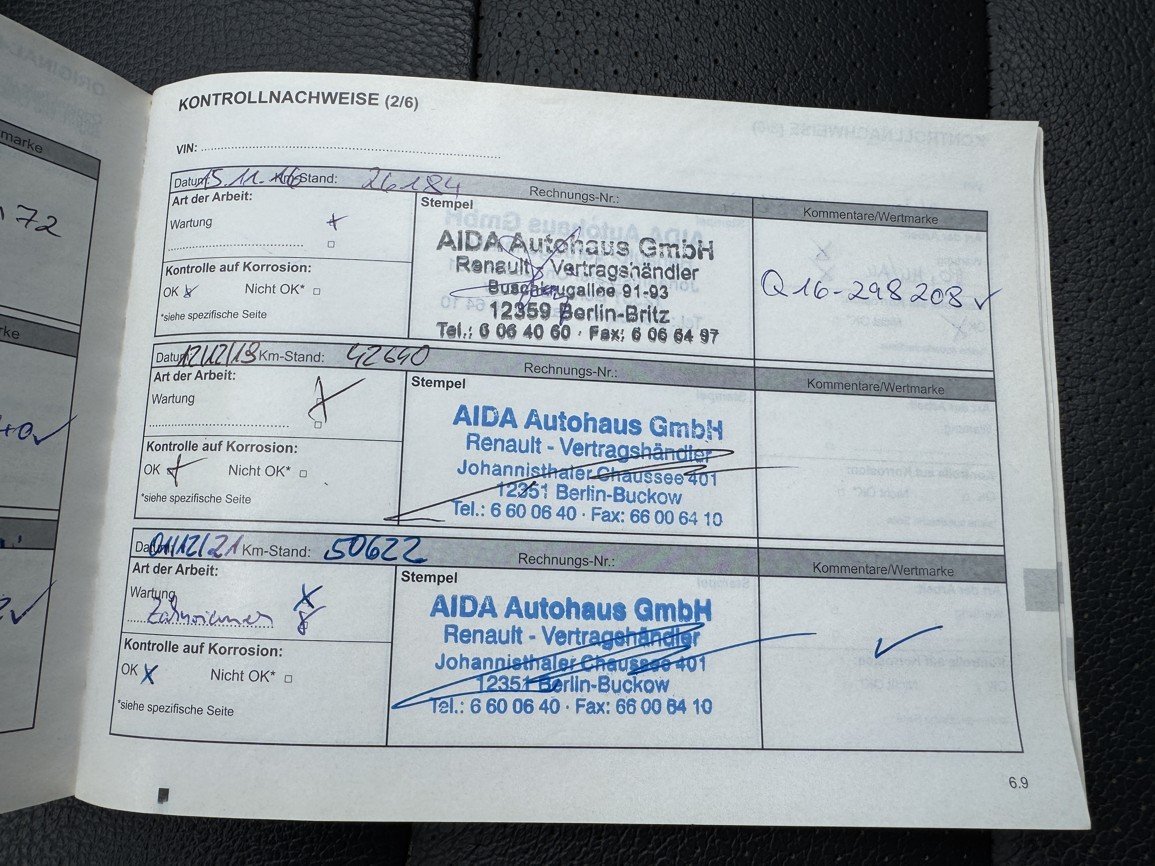 KONTROLLNACHWEISE (2/6)
VIN:
Datum: 15.11.16 Km-Stand: 26184 Rechnungs-Nr.:
Art der Arbeit:
Wartung
Kontrolle auf Korrosion:
OK Nicht OK*
*siehe spezifische Seite
Stempel
AIDA Autohaus GmbH
Renault - Vertragshändler
Buschkrugallee 91-93
12359 Berlin-Britz
Tel.: 6 06 40 60 · Fax: 6 06 64 97
Kommentare/Wertmarke
Q16-298208
Datum: 12/12/19 Km-Stand: 42640 Rechnungs-Nr.:
Art der Arbeit:
Wartung
Kontrolle auf Korrosion:
OK Nicht OK*
*siehe spezifische Seite
Stempel
AIDA Autohaus GmbH
Renault - Vertragshändler
Johannisthaler Chaussee 401
12351 Berlin-Buckow
Tel.: 6 60 06 40 · Fax: 66 00 64 10
Kommentare/Wertmarke
Datum: 01/12/21 Km-Stand: 50622 Rechnungs-Nr.:
Art der Arbeit:
Wartung
Zahnriemen
Kontrolle auf Korrosion:
OK Nicht OK*
*siehe spezifische Seite
Stempel
AIDA Autohaus GmbH
Renault - Vertragshändler
Johannisthaler Chaussee 401
12351 Berlin-Buckow
Tel.: 6 60 06 40 · Fax: 66 00 64 10
Kommentare/Wertmarke
6.9